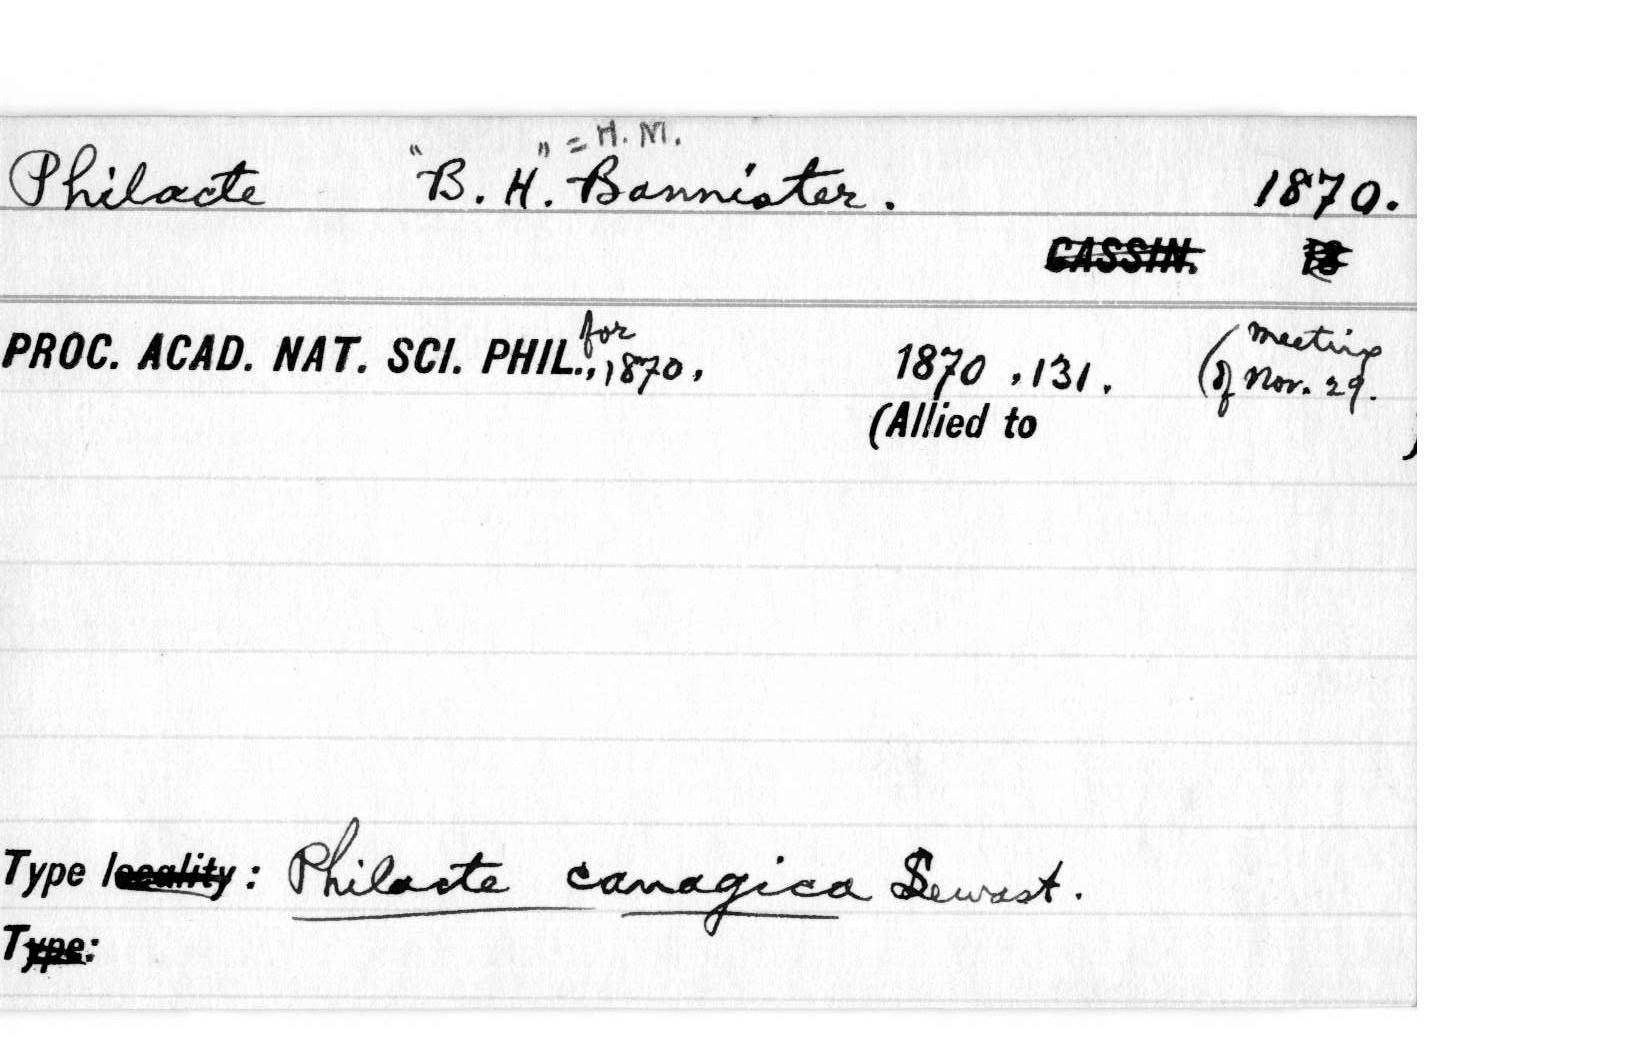 Philacte "B. H." = H. M. Bannister. 1870.
CASSIN. 18
PROC. ACAD. NAT. SCI. PHIL., for 1870, 1870, 131. (Meeting of Nov. 29.
(Allied to )
Type locality: Philacte canagica Sewast.
Type: